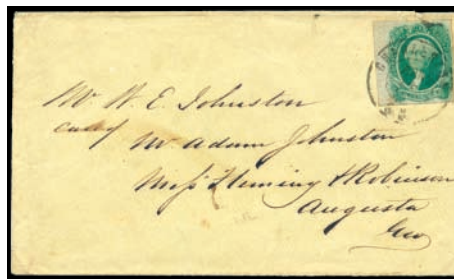 Mr W. E. Johnston
care of Mr Adam Johnston
Mess Fleming & Robinson
Augusta
Geo